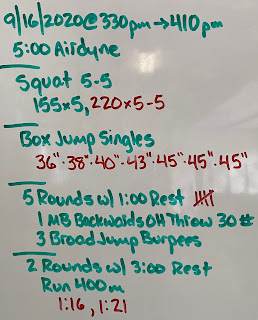 9/16/2020@330pm→410pm
5:00 Airdyne
Squat 5-5
155x5, 220x5-5
Box Jump Singles
36"·38"·40"·43"·45"·45"·45"
5 Rounds w/ 1:00 Rest
1 MB Backwards OH Throw 30#
3 Broad Jump Burpees
2 Rounds w/ 3:00 Rest
Run 400m
1:16, 1:21